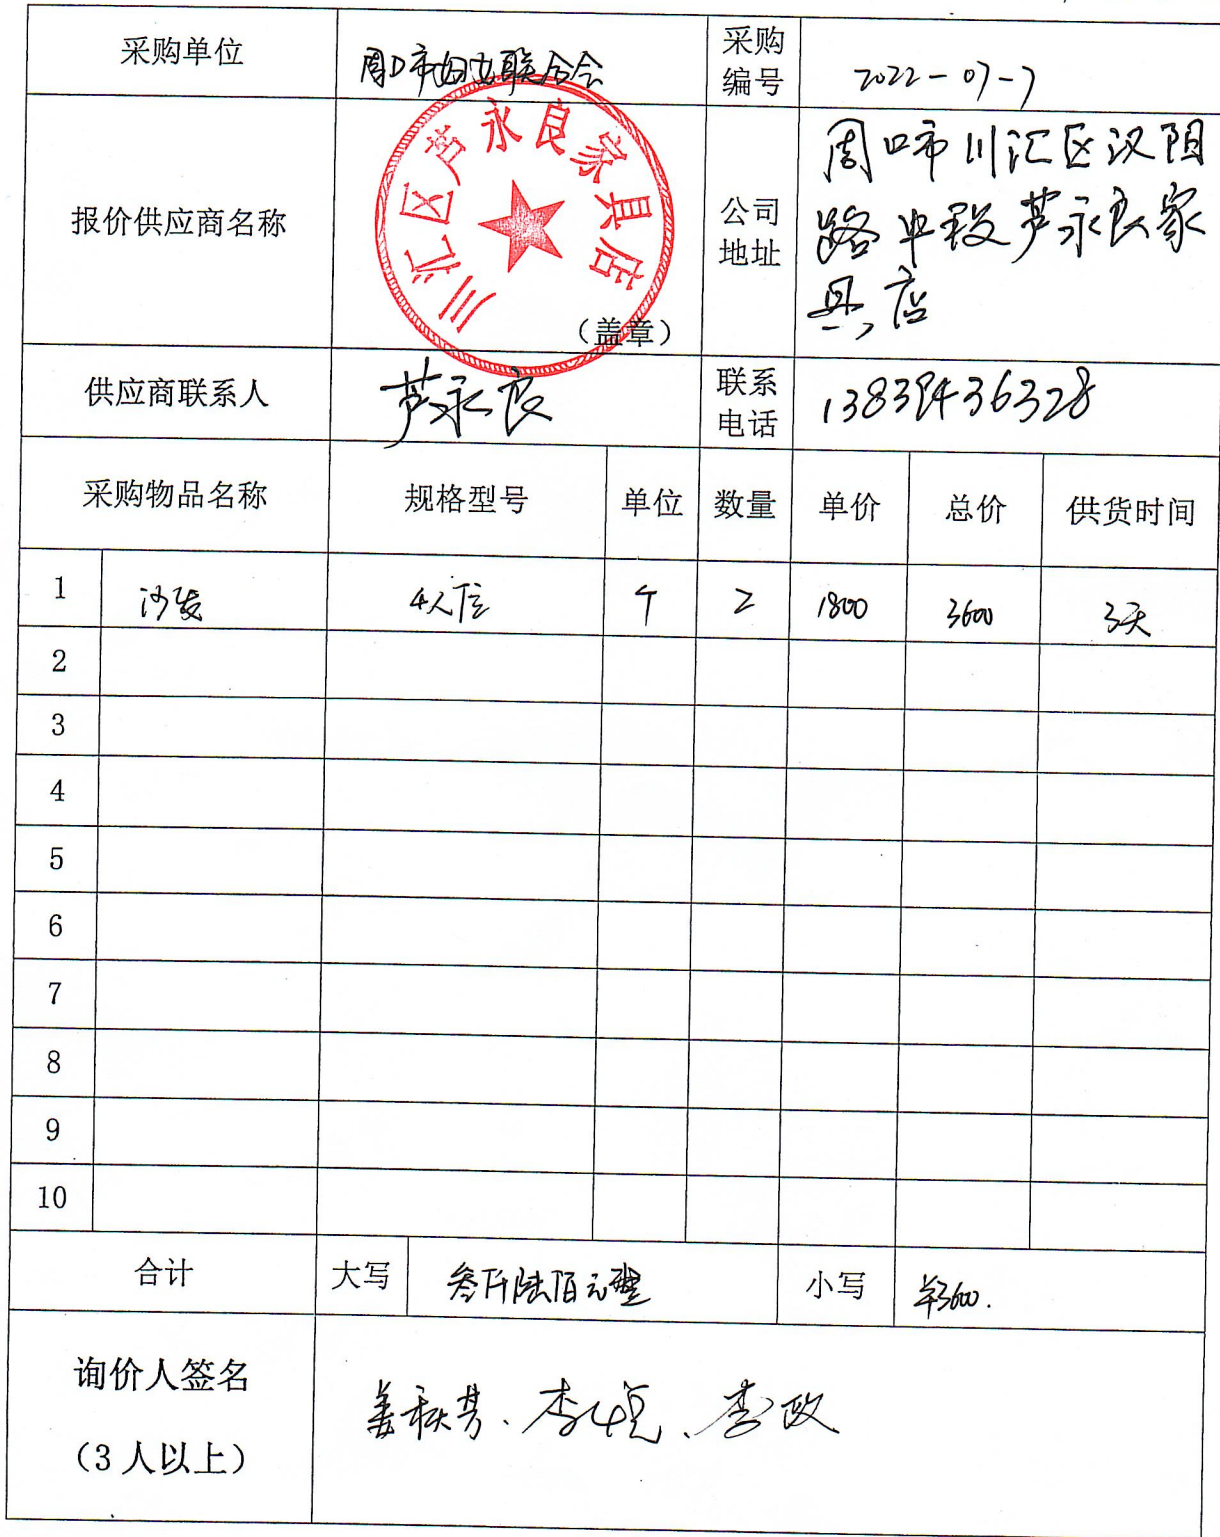 采购单位 周口市妇女联合会 采购编号 2022-07-7
报价供应商名称 川汇区芦永良家具店 (盖章) 公司地址 周口市川汇区汉阳
路中段芦永良家
具店
供应商联系人 芦永良 联系电话 13839436328
采购物品名称 规格型号 单位 数量 单价 总价 供货时间
1 沙发 4人位 个 2 1800 3600 3天
2
3
4
5
6
7
8
9
10
合计 大写 叁仟陆佰元整 小写 ¥3600.
询价人签名
(3人以上)
姜秋芳、李、李政